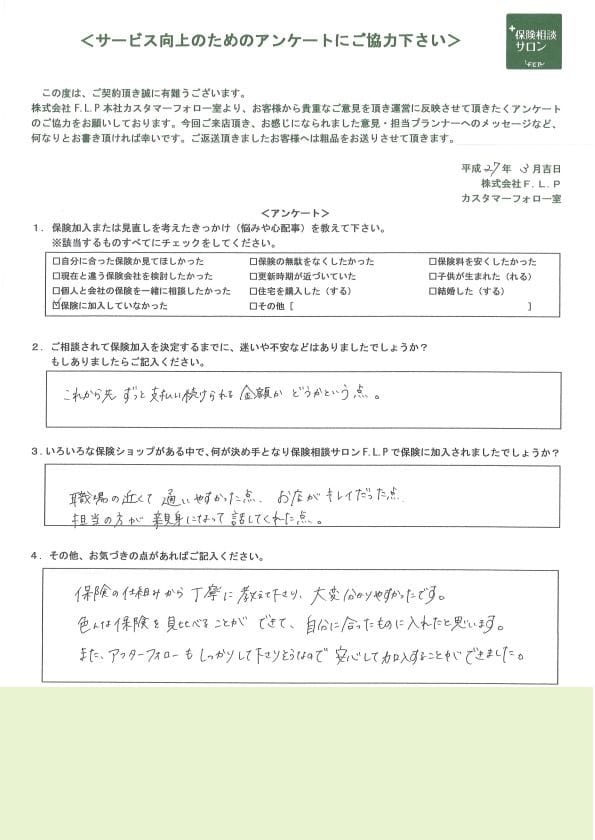 ＜サービス向上のためのアンケートにご協力下さい＞
保険相談
サロン
F.L.P
この度は、ご契約頂き誠に有難うございます。
株式会社F.L.P本社カスタマーフォロー室より、お客様から貴重なご意見を頂き運営に反映させて頂きたくアンケート
のご協力をお願いしております。今回ご来店頂き、お感じになられました意見・担当プランナーへのメッセージなど、
何なりとお書き頂ければ幸いです。ご返送頂きましたお客様へは粗品をお送りさせて頂きます。
平成27年 3月吉日
株式会社F.L.P
カスタマーフォロー室
＜アンケート＞
1．保険加入または見直しを考えたきっかけ（悩みや心配事）を教えて下さい。
※該当するものすべてにチェックをしてください。
□自分に合った保険か見てほしかった □保険の無駄をなくしたかった □保険料を安くしたかった
□現在と違う保険会社を検討したかった □更新時期が近づいていた □子供が生まれた（れる）
□個人と会社の保険を一緒に相談したかった □住宅を購入した（する） □結婚した（する）
☑保険に加入していなかった □その他［ ］
2．ご相談されて保険加入を決定するまでに、迷いや不安などはありましたでしょうか？
もしありましたらご記入ください。
これから先 ずっと支払い続けられる金額か どうかという点。
3．いろいろな保険ショップがある中で、何が決め手となり保険相談サロンF.L.Pで保険に加入されましたでしょうか？
職場の近くて 通いやすかった点、お店がキレイだった点、
担当の方が 親身になって話してくれた点。
4．その他、お気づきの点があればご記入ください。
保険の仕組みから丁寧に教えて下さり、大変分かりやすかったです。
色んな保険を見比べることができて、自分に合ったものに入れたと思います。
また、アフターフォローもしっかりして下さりそうなので安心して加入することができました。